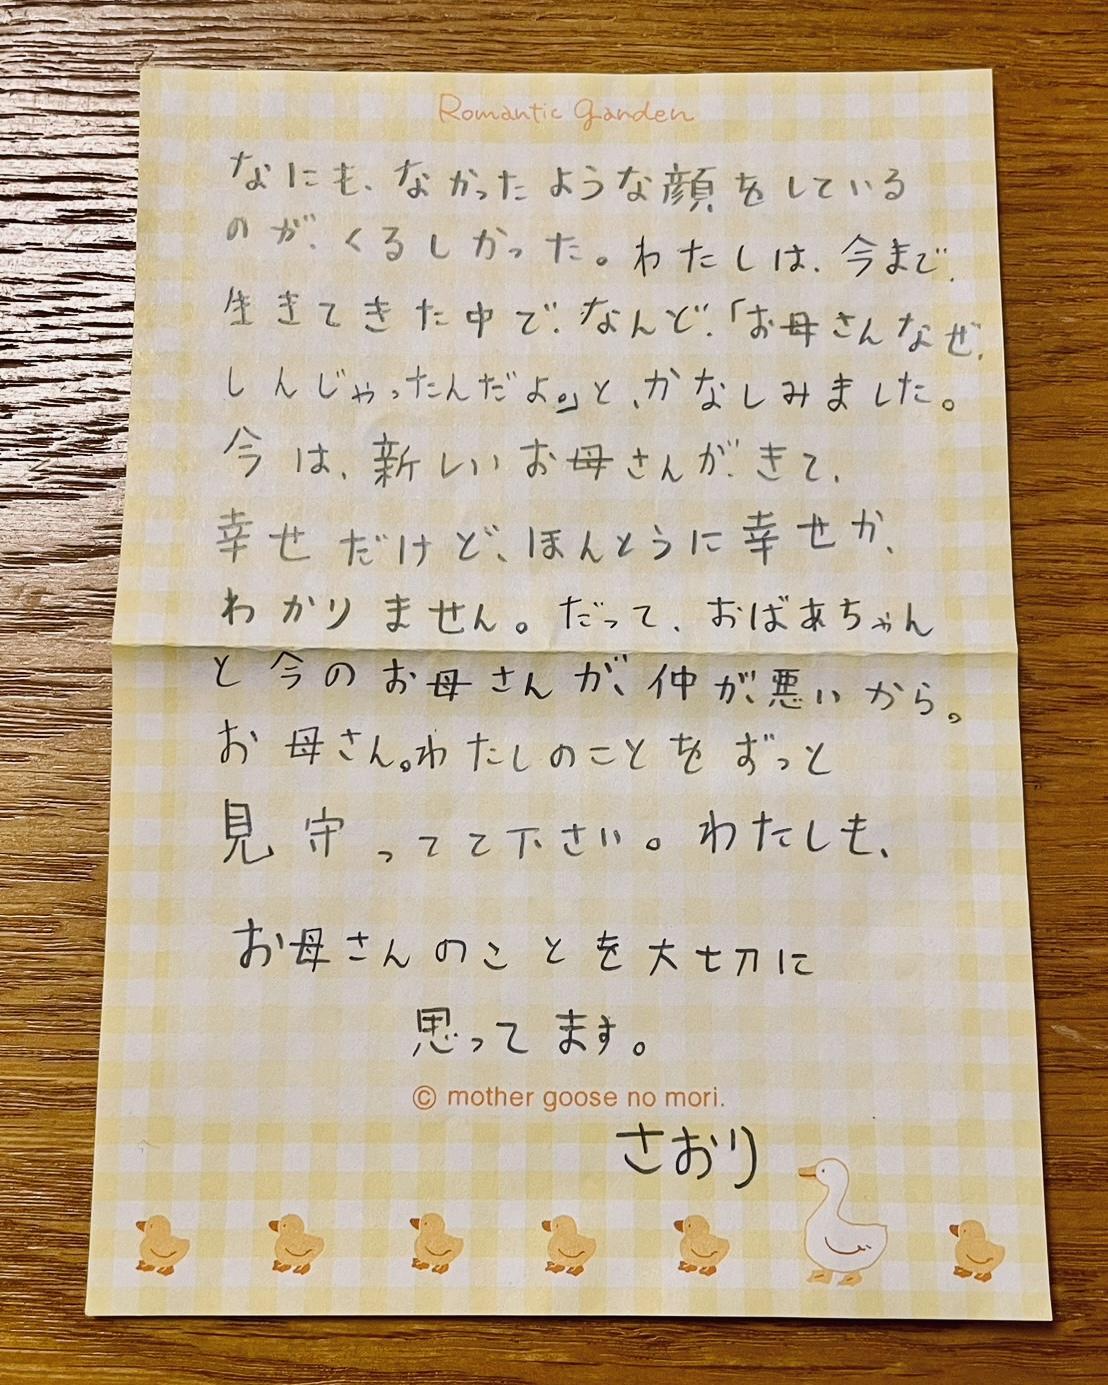 Romantic garden
なにも、なかったような顔をしている
のが、くるしかった。わたしは、今まで、
生きてきた中で、なんど、「お母さんなぜ、
しんじゃったんだよ。」と、かなしみました。
今は、新しいお母さんが、きて、
幸せだけど、ほんとうに幸せか、
わかりません。だって、おばあちゃん
と今のお母さんが、仲が、悪いから。
お母さん。わたしのことをずっと
見守ってて下さい。わたしも、
お母さんのことを大切に
思ってます。
© mother goose no mori.
さおり